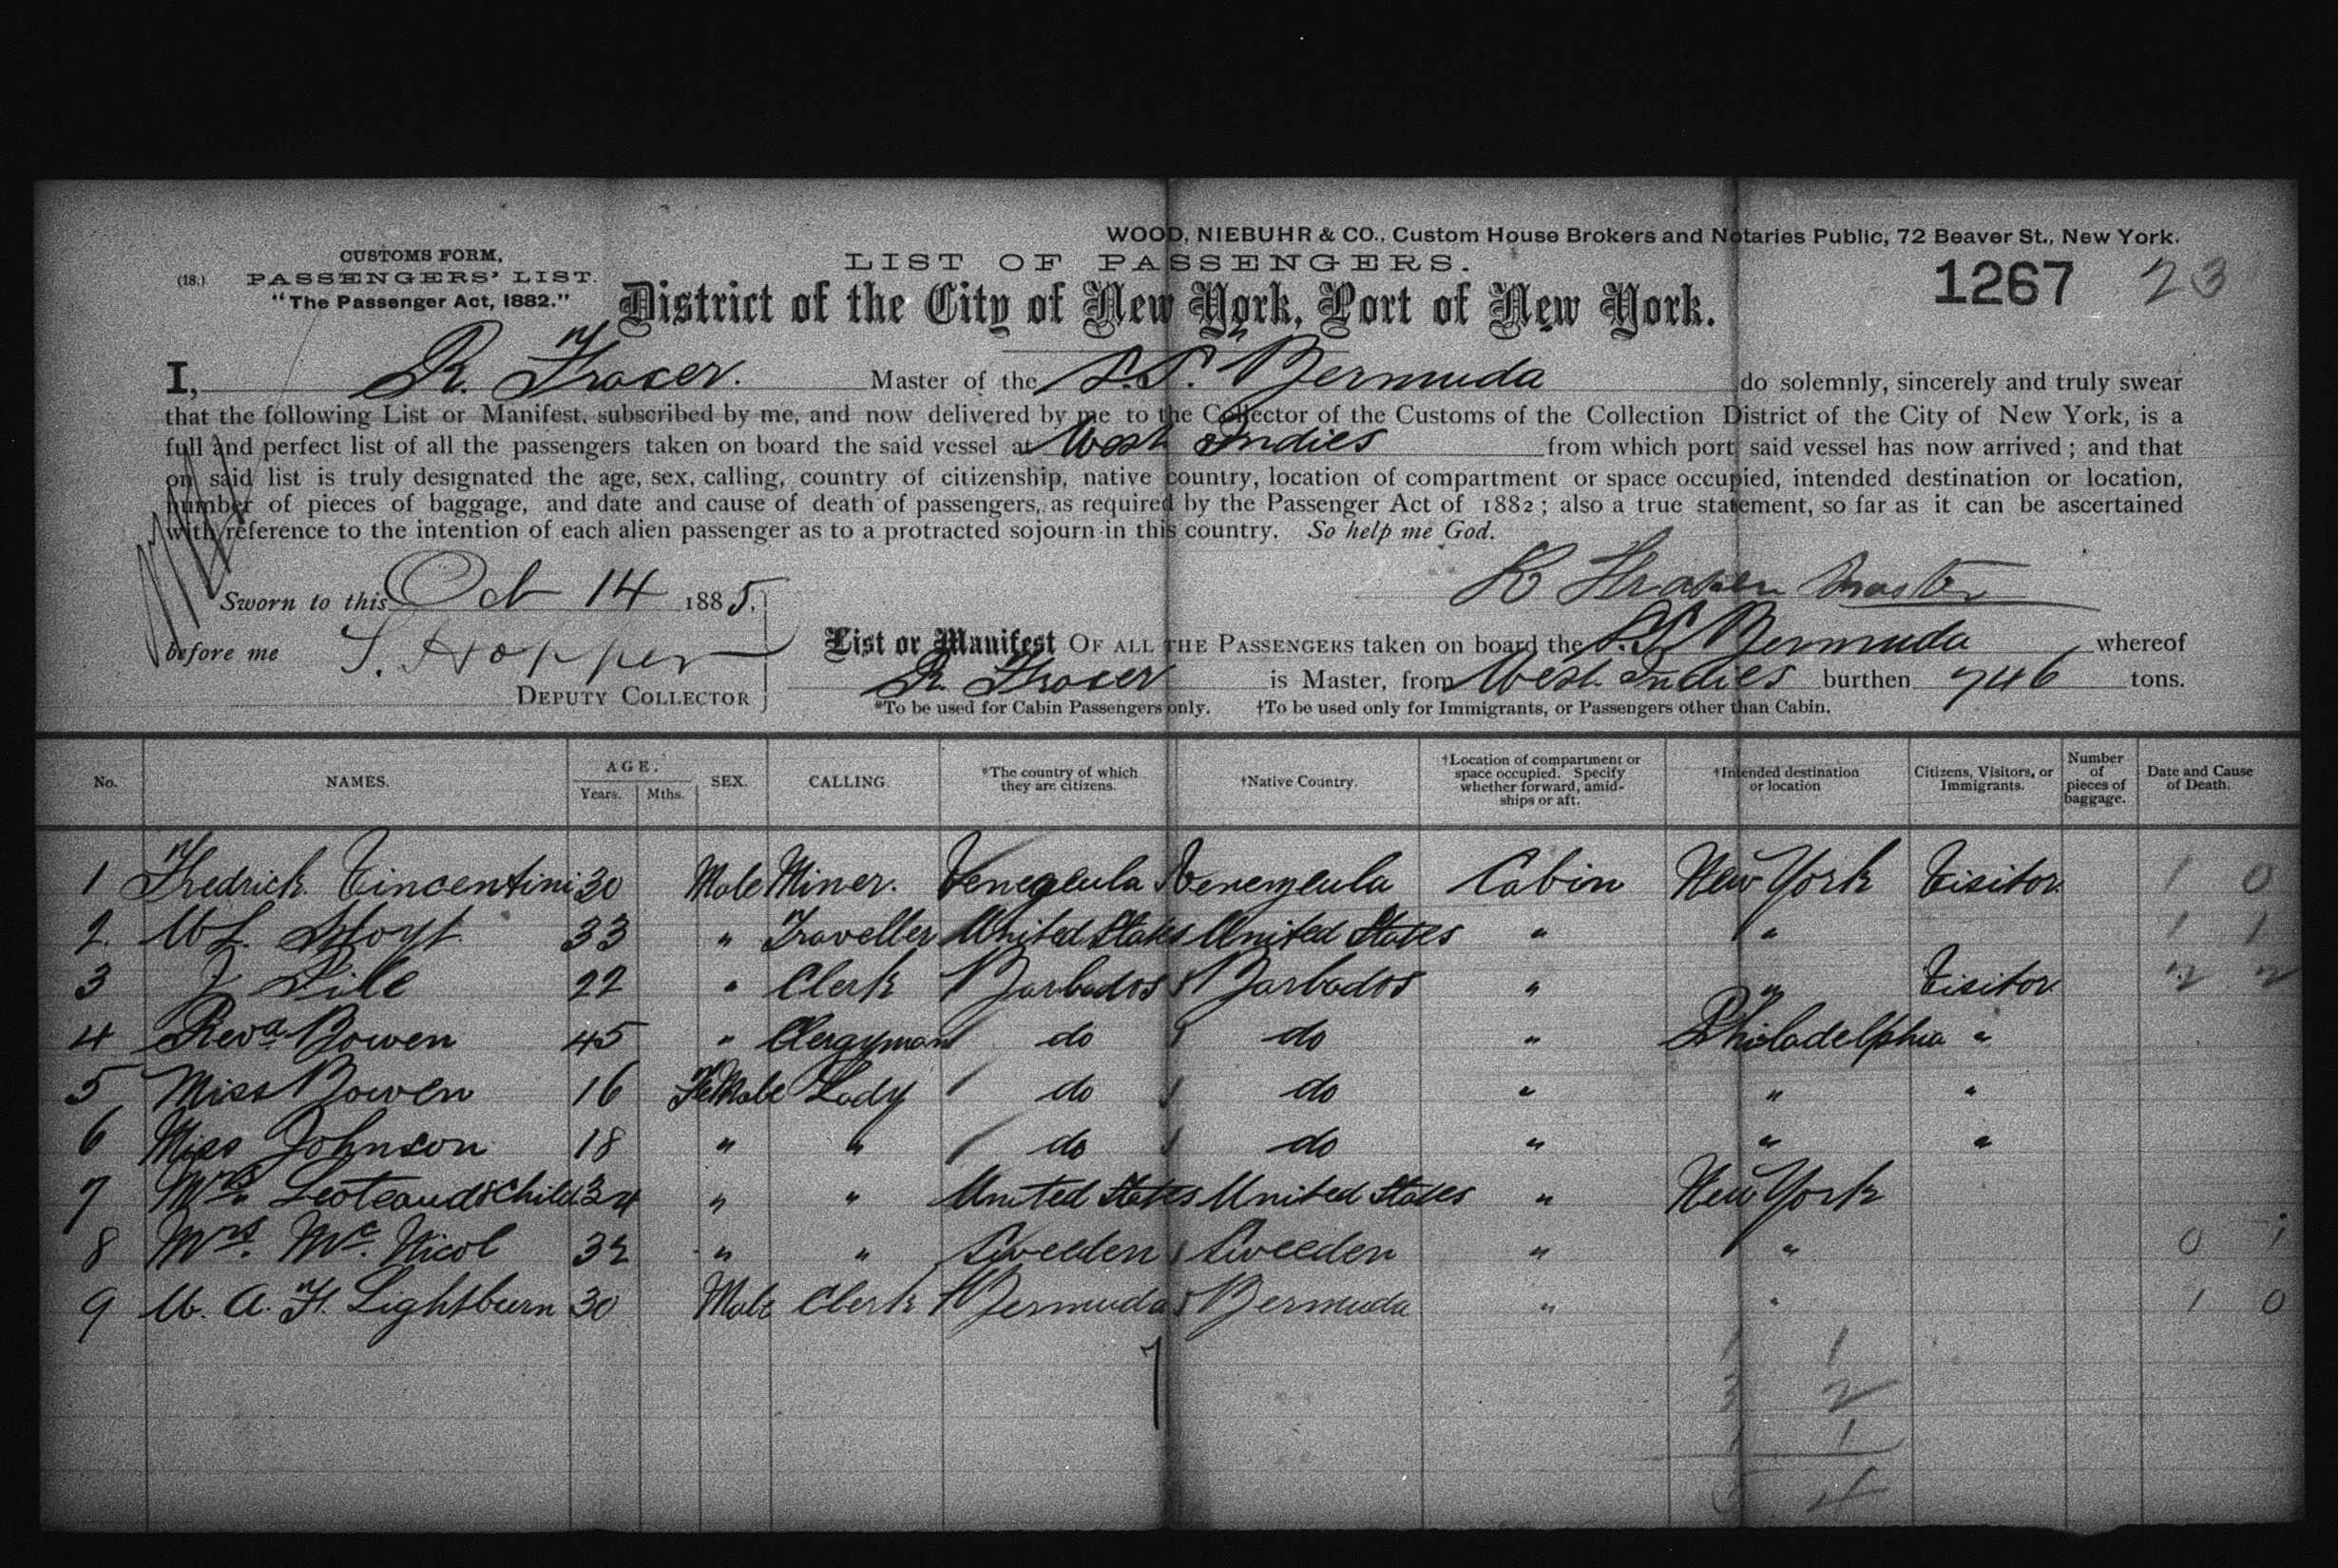 WOOD, NIEBUHR & CO., Custom House Brokers and Notaries Public, 72 Beaver St., New York.
CUSTOMS FORM,
(18.) PASSENGERS' LIST.
"The Passenger Act, 1882."
LIST OF PASSENGERS.
1267 23
District of the City of New York, Port of New York.
I, R. Fraser. Master of the S.S. Bermuda do solemnly, sincerely and truly swear
that the following List or Manifest, subscribed by me, and now delivered by me to the Collector of the Customs of the Collection District of the City of New York, is a
full and perfect list of all the passengers taken on board the said vessel at West Indies from which port said vessel has now arrived; and that
on said list is truly designated the age, sex, calling, country of citizenship, native country, location of compartment or space occupied, intended destination or location,
number of pieces of baggage, and date and cause of death of passengers, as required by the Passenger Act of 1882; also a true statement, so far as it can be ascertained
with reference to the intention of each alien passenger as to a protracted sojourn in this country. So help me God.
R Fraser Master
Sworn to this Oct 14 1885,
before me S. Hopper
DEPUTY COLLECTOR
List or Manifest OF ALL THE PASSENGERS taken on board the S.S. Bermuda whereof
R. Fraser is Master, from West Indies burthen 746 tons.
*To be used for Cabin Passengers only. †To be used only for Immigrants, or Passengers other than Cabin.
No. NAMES. AGE. Years. Mths. SEX. CALLING. *The country of which they are citizens. †Native Country. †Location of compartment or space occupied. Specify whether forward, amidships or aft. †Intended destination or location Citizens, Visitors, or Immigrants. Number of pieces of baggage. Date and Cause of Death.
1 Fredrick Vincentini 30 Male Miner. Venezeula Venenzeula Cabin New York Visitor 1 0
2. W L. Hoyt 33 " Traveller United States United States " " 1 1
3 J Pile 22 " Clerk Barbados Barbados " " Visitor 2 2
4 Revd Bowen 45 " Clergyman do do " Philadelphia "
5 Miss Bowen 16 Female Lady do do " " "
6 Miss Johnson 18 " " do do " " "
7 Mrs & Child 34 " " United States United States " New York
8 Mrs. Mc. Nicol 32 " " Sweeden Sweeden " " 0 1
9 W. A. F. Lightburn 30 Male Clerk Bermuda Bermuda " " 1 0
7
1 1
3 2
1 1
5 4